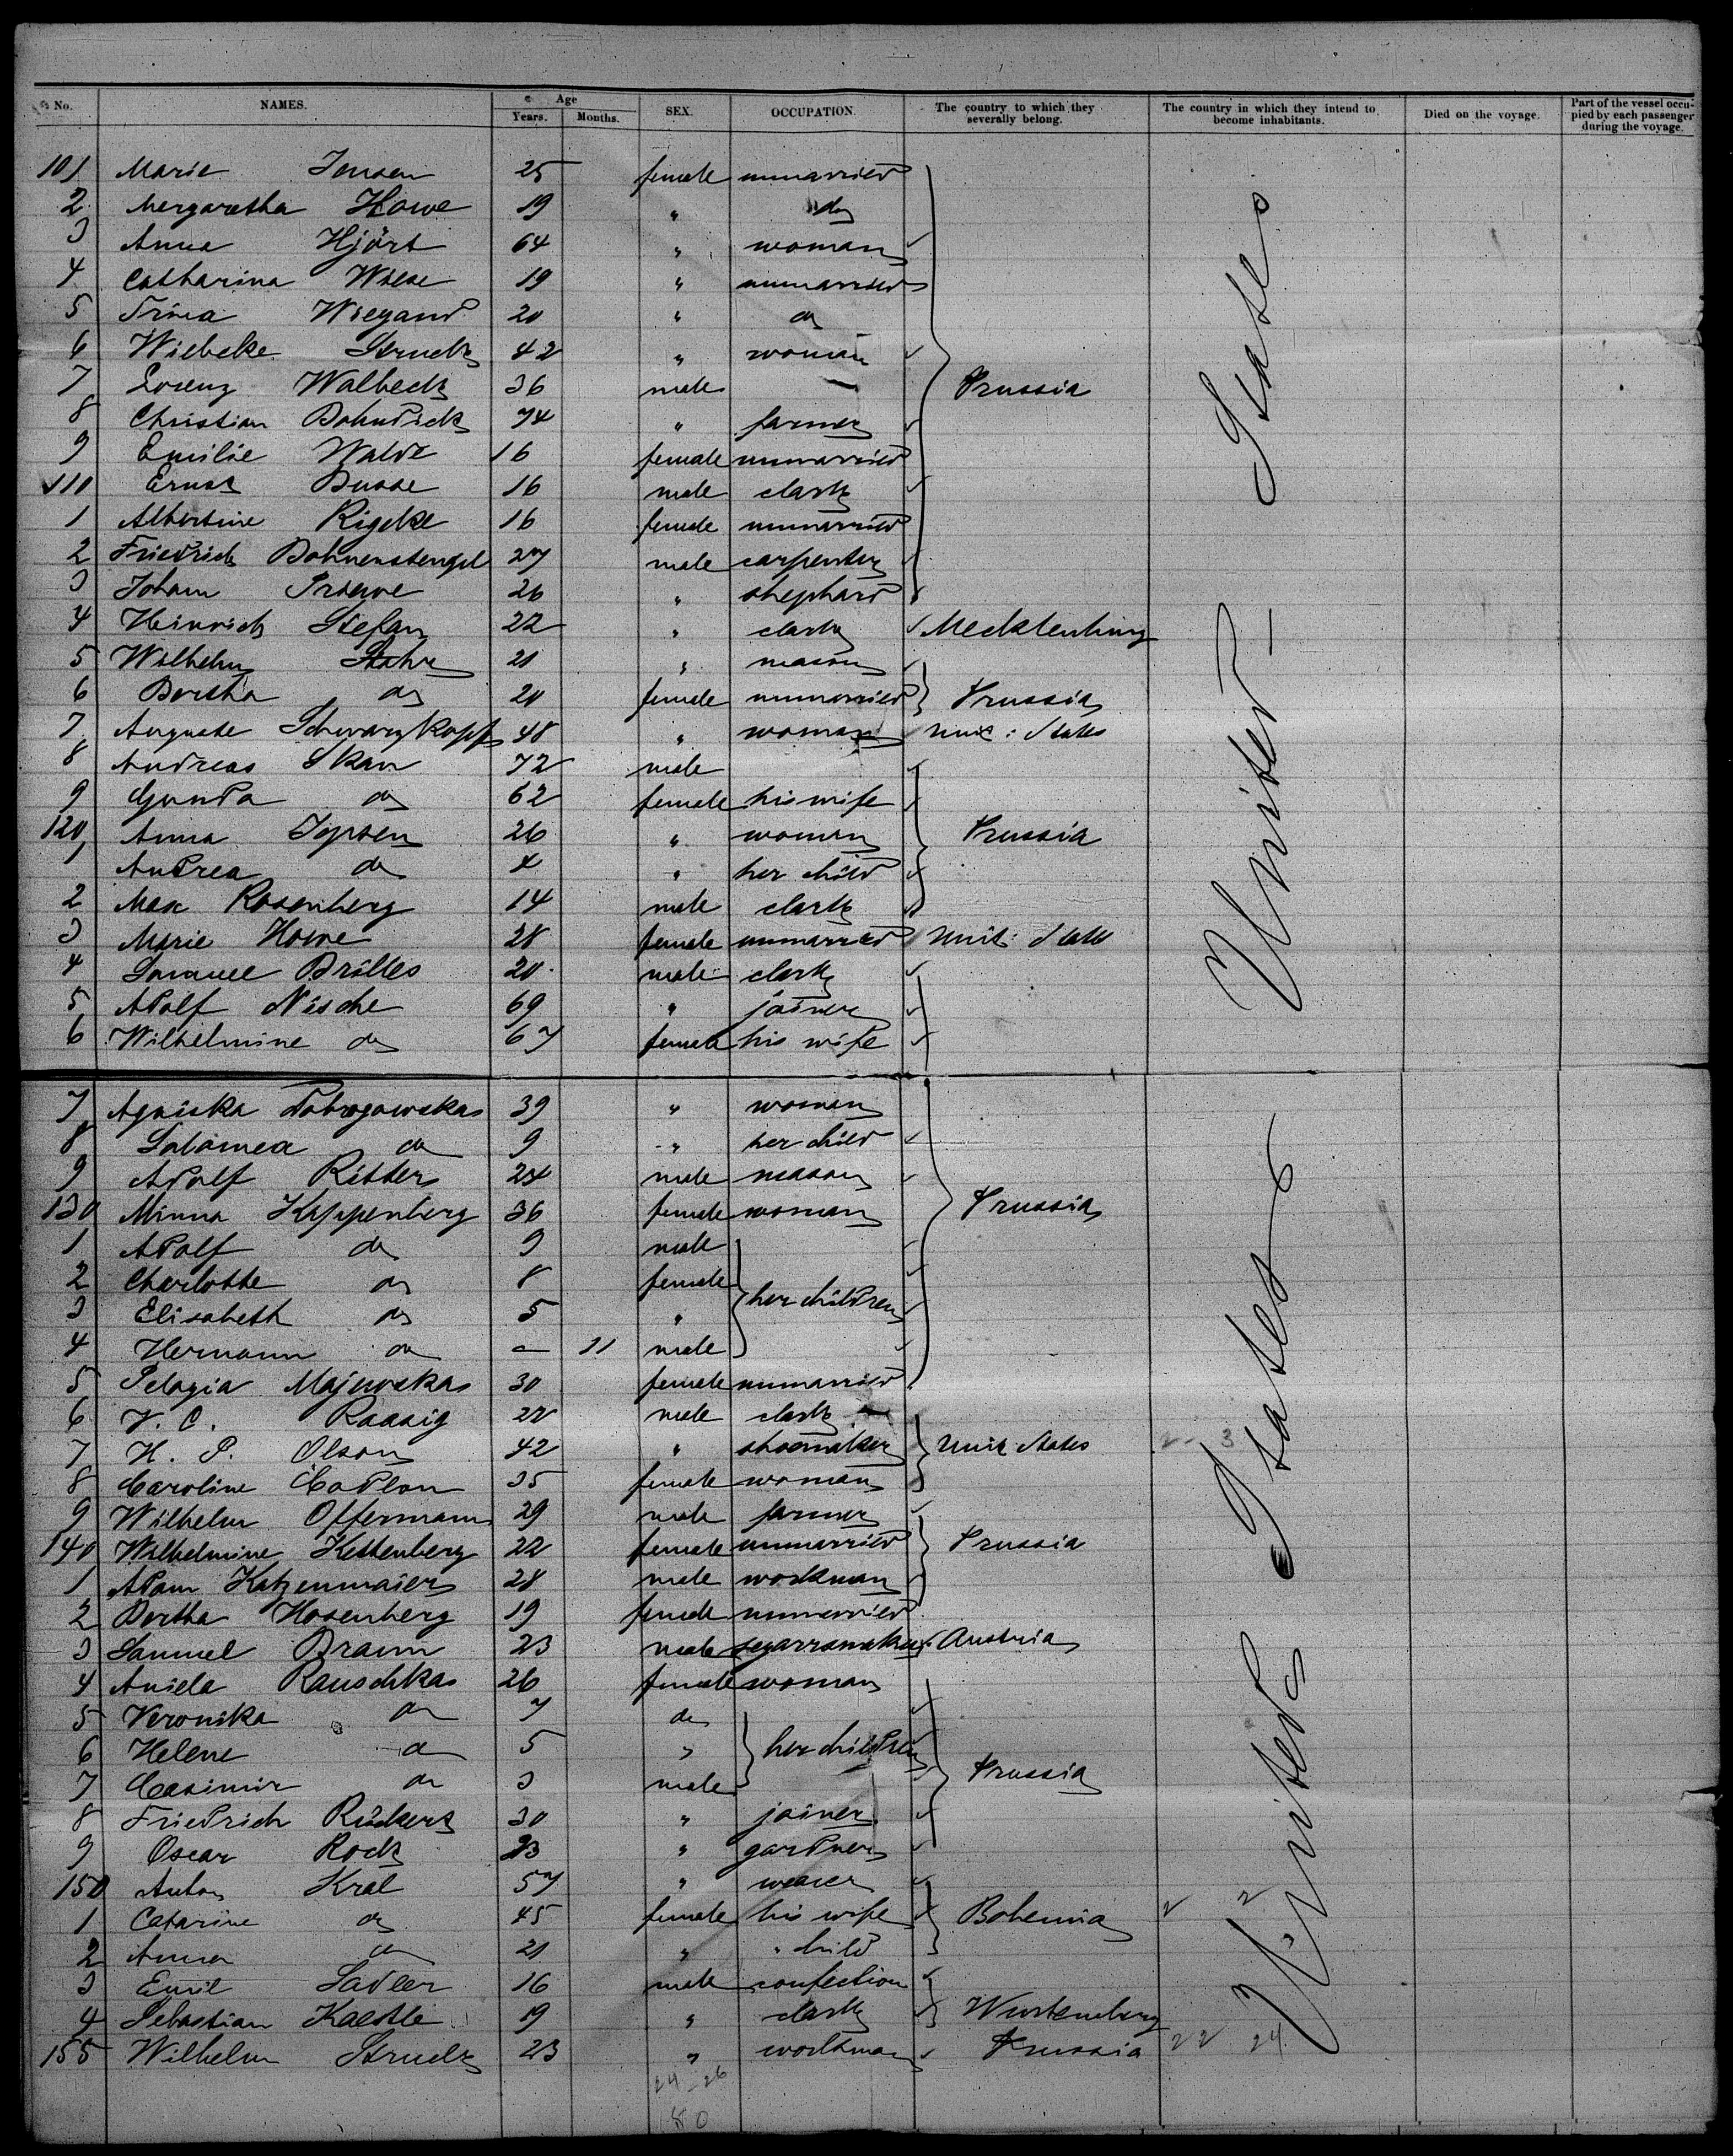 No. NAMES. Age Years. Months. SEX. OCCUPATION. The country to which they severally belong. The country in which they intend to become inhabitants. Died on the voyage. Part of the vessel occupied by each passenger during the voyage.
101 Marie Jensen 25 female unmarried
2 Mergaretha Howe 19 " do
3 Anna Hjört 64 " woman
4 Catharina Wiese 19 " unmarried
5 Trina Wiegand 20 " do
6 Wiebeke Struck 42 " woman
7 Lorenz Walbeck 36 male — Prussia
8 Christian Bohndick 74 " farmer
9 Emilie Waldt 16 female unmarried
110 Ernst Busse 16 male clark
1 Albertine Rigcke 16 female unmarried
2 Friedrich Bohnenstengel 27 male carpenter
3 Johann 26 " shephard
4 Heinrich Stefan 22 " clark Mecklenburg
5 Wilhelm Stahr 21 " mason
6 Bertha do 20 female unmarried Prussia
7 Auguste Schwarzkopf 48 " woman Unit: States
8 Andreas Skau 72 male
9 Gunda do 62 female his wife
120 Anna Jepsen 26 " woman Prussia
1 Andrea do 4 " her child
2 Max Rosenberg 14 male clark
3 Marie Howe 28 female unmarried Unit: States
4 Samuel Brilles 20 male clark
5 Adolf Nische 69 " joiner
6 Wilhelmine do 67 female his wife
United States
7 Agniska Dobrogowska 39 " woman
8 Salomea do 9 " her child
9 Adolf Ritter 24 male mason
130 Minna Kippenberg 36 female woman Prussia
1 Adolf do 9 male
2 Charlotte do 8 female
3 Elisabeth do 5 " her children
4 Hermann do — 11 male
5 Pelagia Majewska 30 female unmarried
6 V. C. Raasig 22 male clark
7 H. P. Olson 42 " shoemaker Unit States
8 Caroline Cadlon 35 female woman
9 Wilhelm Offermann 29 male farmer
140 Wilhelmine Kettenberg 22 female unmarried Prussia
1 Adam Katzenmaier 28 male workman
2 Bertha Hosenberg 19 female unmarried
3 Samuel Braun 23 male segarramaker Austria
4 Aniela Rauschka 26 female woman
5 Veronika do 7 do
6 Helene do 5 " her children
7 Casimir do 3 male Prussia
8 Friedrich Rückert 30 " joiner
9 Oscar Rock 23 " gardner
150 Anton Kral 57 " weaver
1 Catarine do 45 female his wife Bohemia
2 Anna do 21 " " child
3 Emil Sadler 16 male confection
4 Sebastian Kaestle 19 " clark Wurtemberg
155 Wilhelm Struck 23 " workman Prussia 22 24
United States
24-26
80